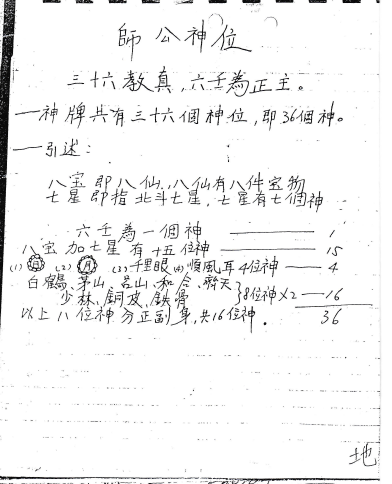 師公神位
三十六教真，六壬為正主。
一神牌共有三十六個神位，即36個神。
一引述：
八宝即八仙，八仙有八件宝物
七星即指北斗七星，七星有七個神
六壬為一個神 —— 1
八宝加七星有十五位神 —— 15
(1) 日 (2) 月 (3) 千里眼 (4) 順風耳 4位神 —— 4
白鶴、茅山、呂山、和合、齊天
少林、銅皮、鉄骨 }8位神×2 —— 16
以上八位神分正副身，共16位神。 36
地